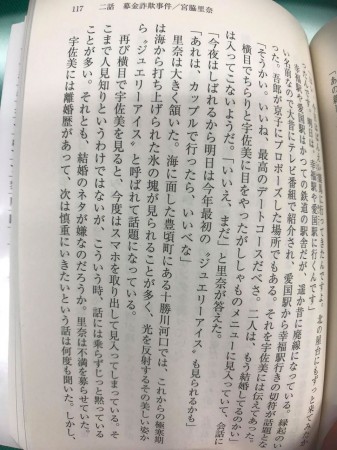 117　二話　募金詐欺事件／宮脇里奈
北の屋台にもずっと来てみたか
幸福駅や愛国駅に行くんです」
幸福駅や愛国駅はかつての鉄道の駅舎だが、遥か昔に廃線になっている。縁起のい
い名前なので大昔にテレビ番組で紹介され、愛国駅から幸福駅行きの切符が話題とな
った。吾郎が京子にプロポーズした場所でもある。それを宇佐美には伝えてあった。
「そうかい。いいね、最高のデートコースだべさ。二人は、もう結婚してるのかい」
横目でちらりと宇佐美に目をやったがししゃものメニューに見入っていて、会話に
は入ってこないようだ。「いいえ、まだ」と里奈が答えた。
「今夜はしばれるから明日は今年最初の〝ジュエリーアイス〟も見られるかも」
「あれは、カップルで行ったら、いいべな」
里奈は大きく頷いた。海に面した豊頃町にある十勝川河口では、これからの極寒期
は海から打ち上げられた氷の塊が見られることが多く、光を反射するその美しい姿か
ら〝ジュエリーアイス〟と呼ばれて話題になっている。
再び横目で宇佐美を見ると、今度はスマホを取り出して見入ってしまっている。そ
こまで人見知りというわけではないが、こういう時、話には乗らずじっと黙っている
ことが多い。それとも、結婚のネタが嫌なのだろうか。里奈は不満を募らせていた。
宇佐美には離婚歴があって、次は慎重にいきたいという話は何度も聞いた。しかし、